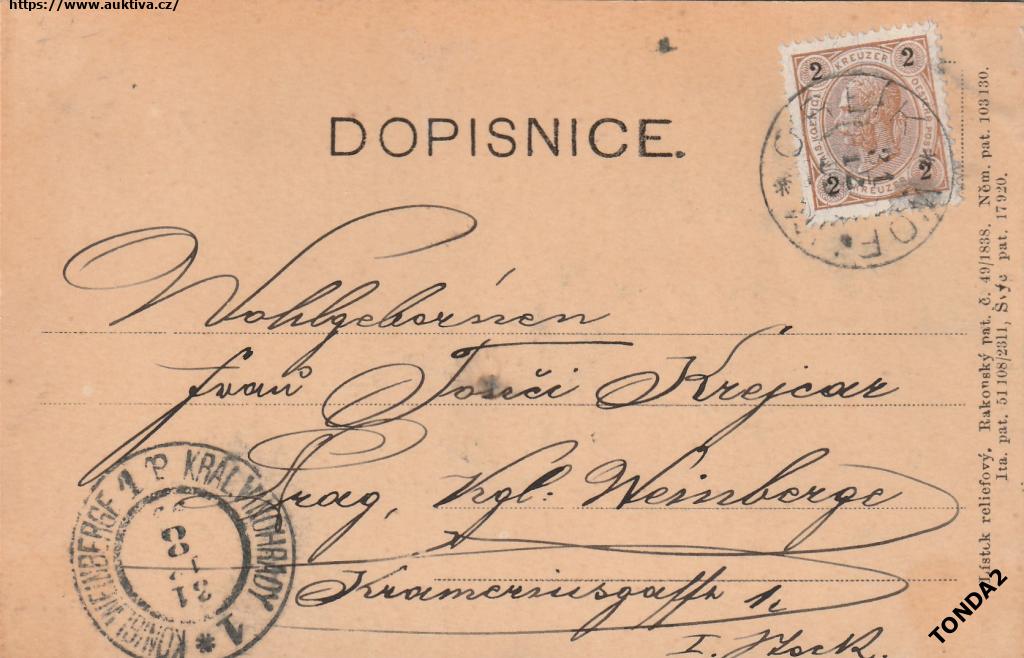 https://www.auktiva.cz/
DOPISNICE.
2 KREUZER 2
2 KREUZER 2
Wohlgebornen
Frau Tonči Krejcar
Prag, Kgl: Weinberge
Krameriusgasse 1,
I. Stock.
KRÁL. VINOHRADY 1
KÖNIGL. WEINBERGE 1
31
12
8
Lístek reliefový. Rakouský pat. č. 49/1838. Něm. pat. 103130.
Ita. pat. 51108/2311, Švýc pat. 17920.
TONDA2